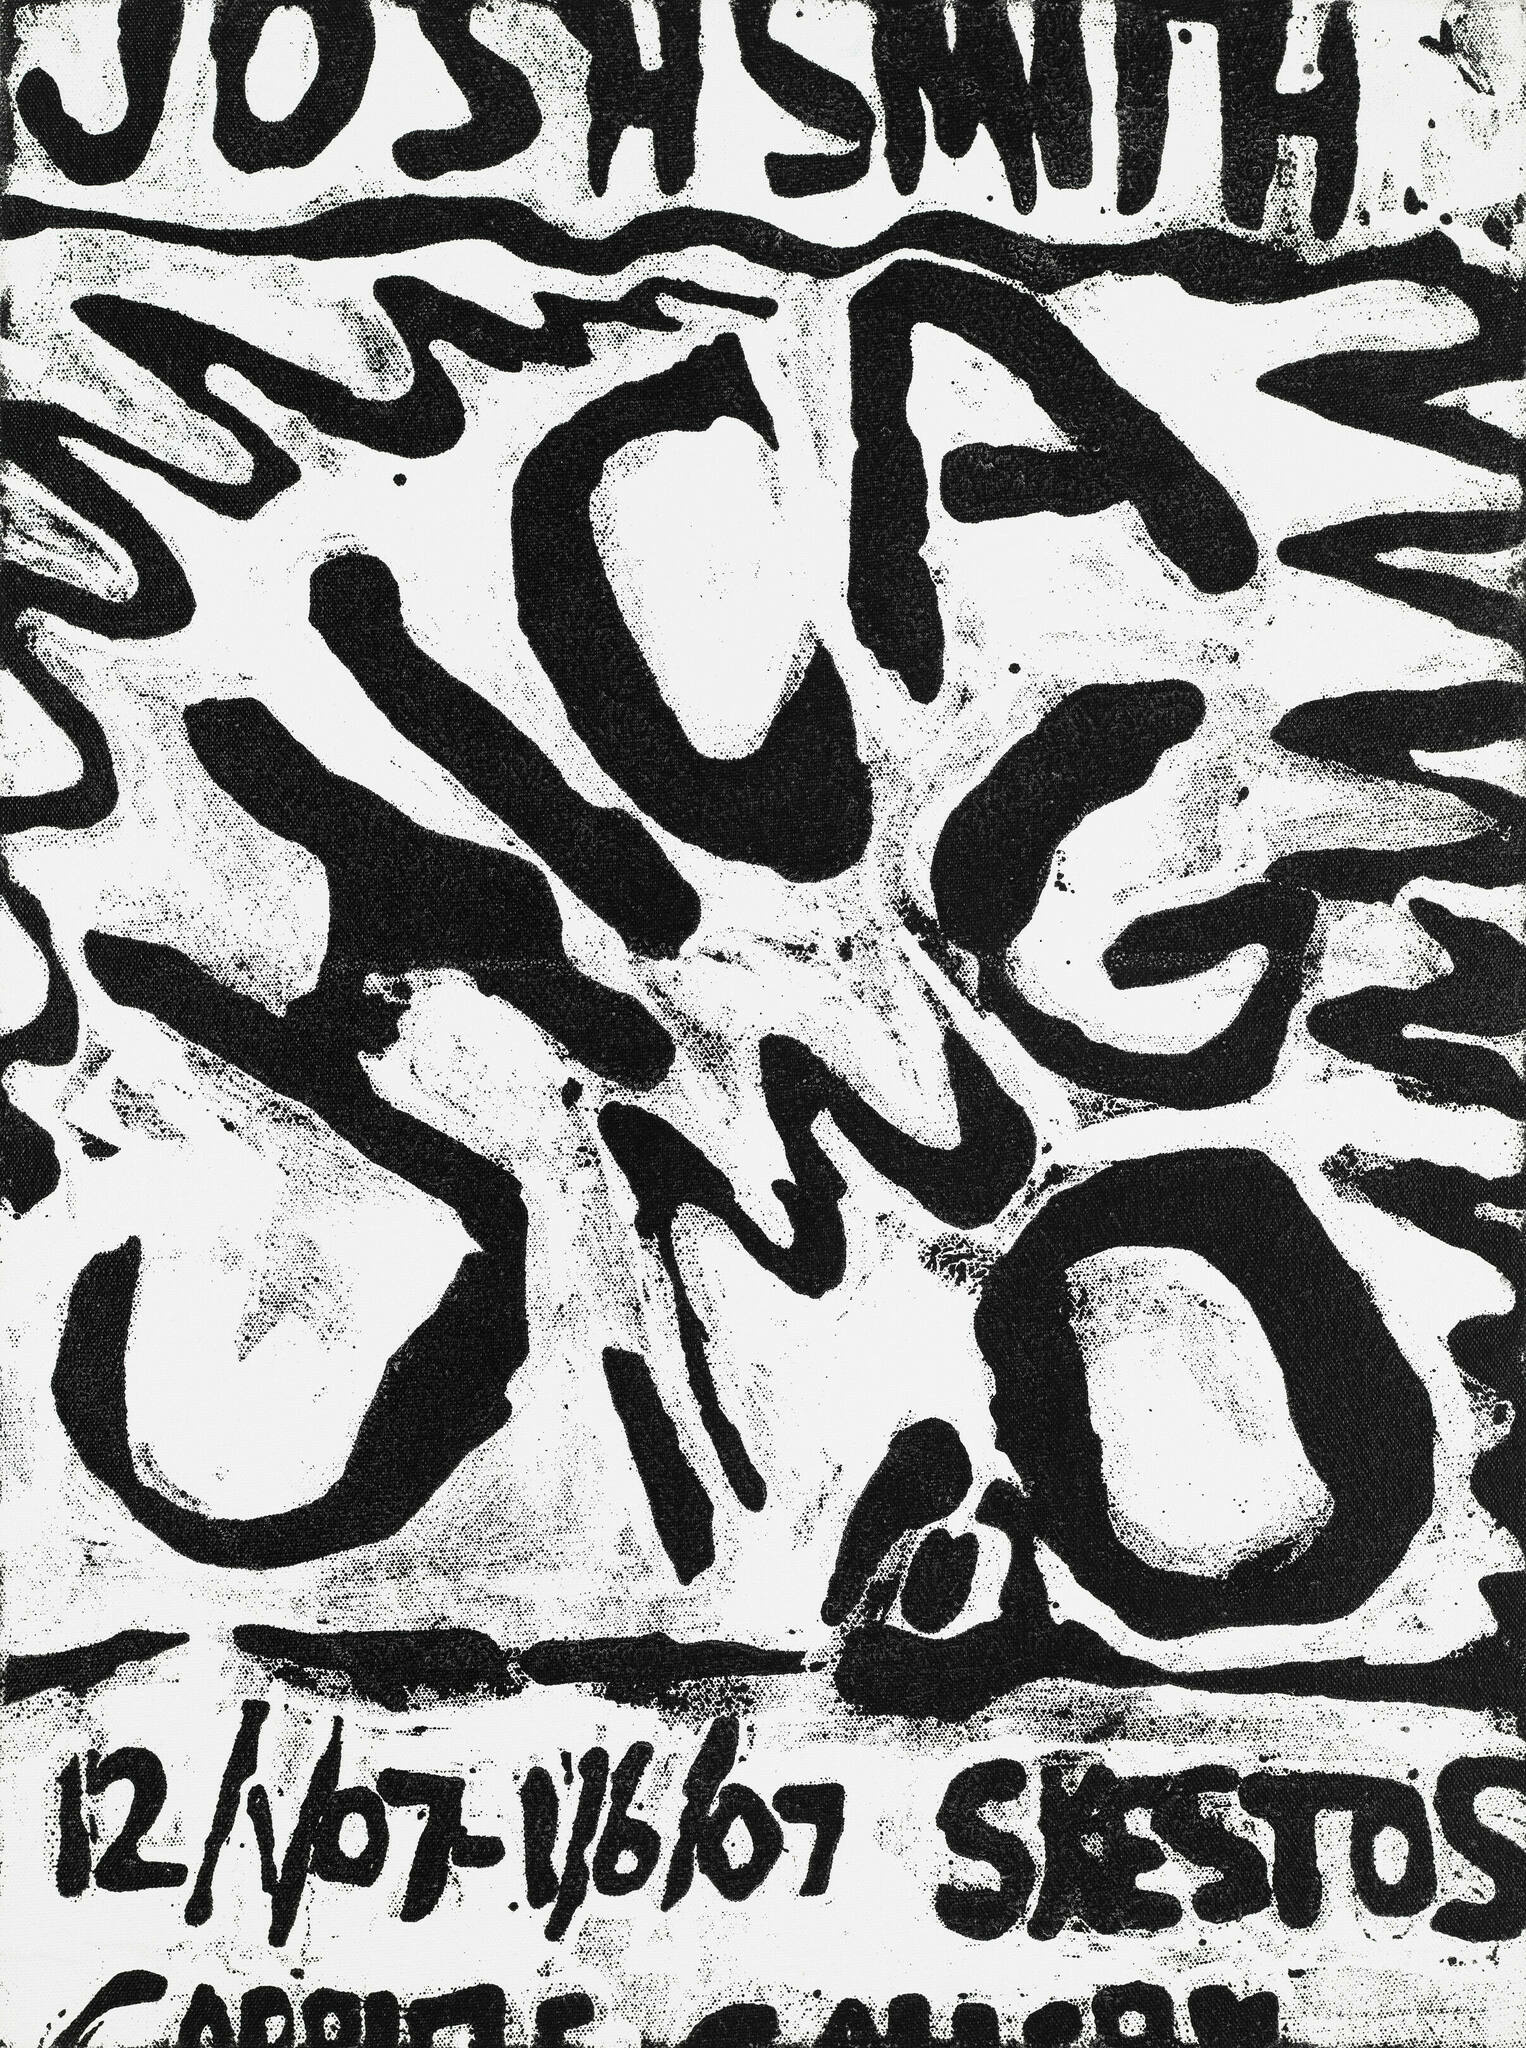 JOSH SMITH
CHICAGO
12/1/07-1/6/07 SKESTOS
GABRIELE GALLERY